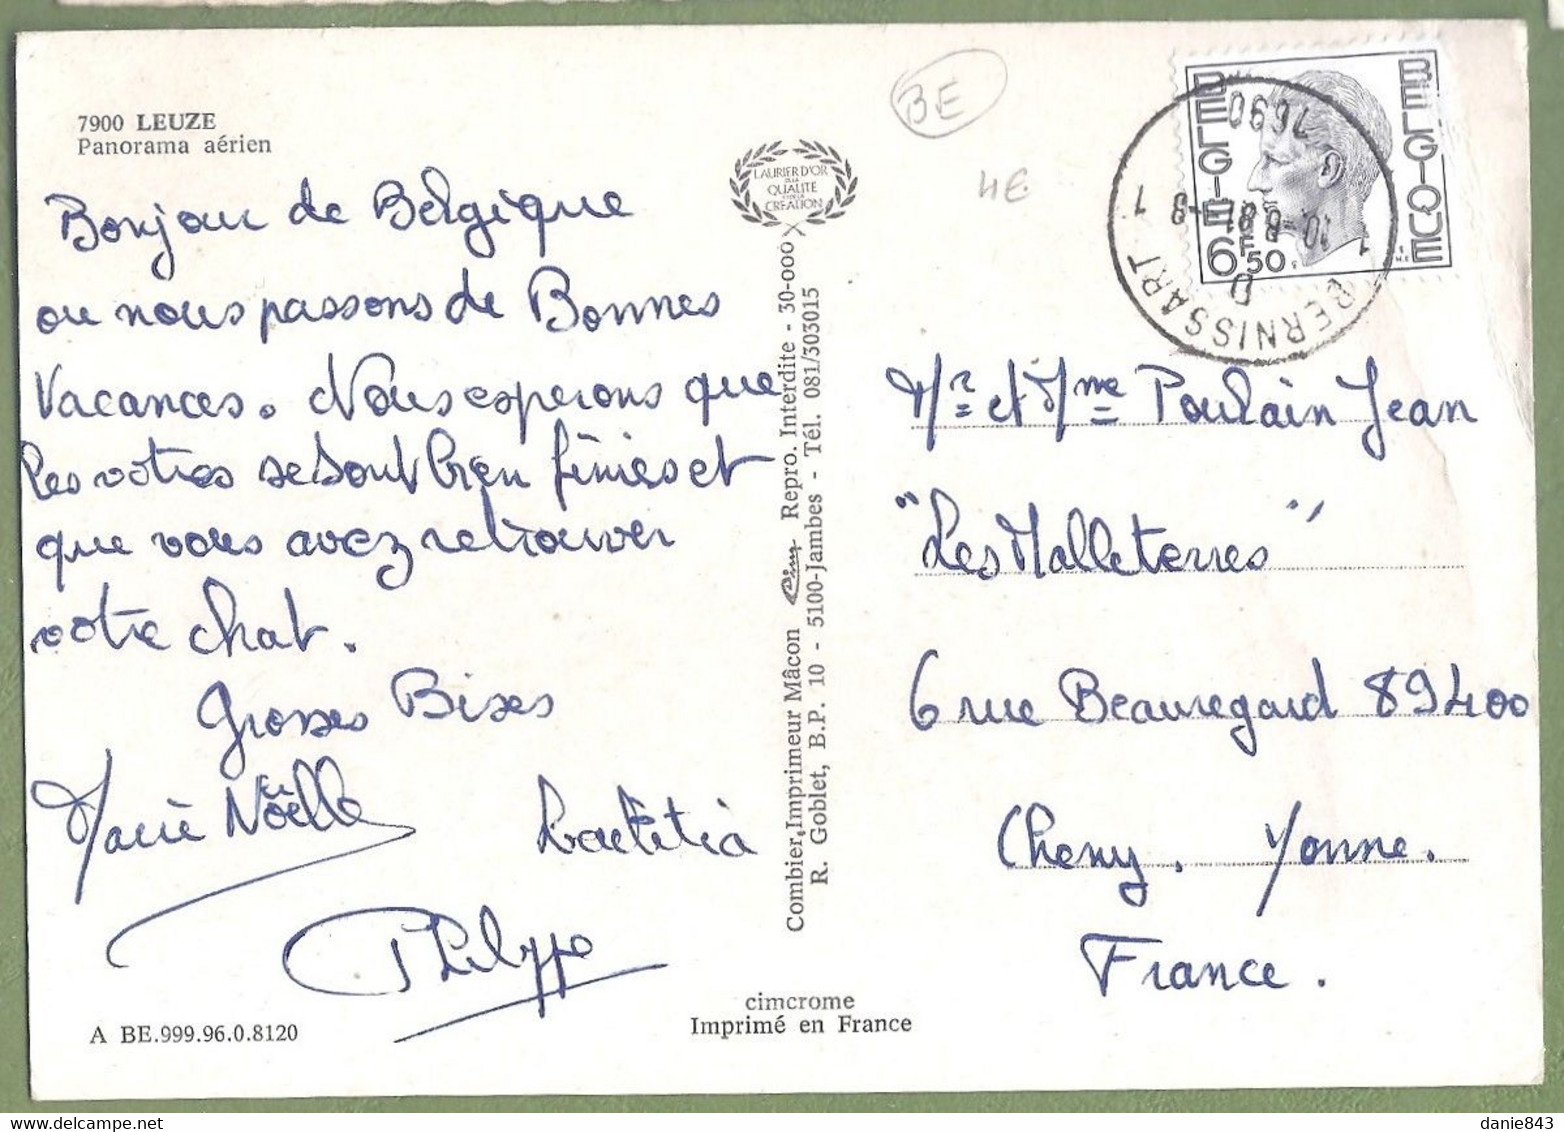 7900 LEUZE
Panorama aérien
Bonjour de Belgique
ou nous passons de Bonnes
Vacances. Nous esperons que
les votres se sont bien finies et
que vous avez retrouver
votre chat.
Grosses Bises
Marie Noëlle
Laetitia
Philippe
A BE.999.96.0.8120
LAURIER D'OR
DE LA
QUALITE
ET DE LA
CREATION
Combier Imprimeur Mâcon Cim Repro. Interdite - 30-000 X
R. Goblet, B.P. 10 - 5100-Jambes - Tél. 081/303015
cimcrome
Imprimé en France
BE
4€
BELGIE
BELGIQUE
6F50
7690
BERNISSART
D
1 1
Mr et Mme Poulain Jean
"Les Malleterres"
6 rue Beauregard 89400
Cheny. Yonne.
France.
danie843